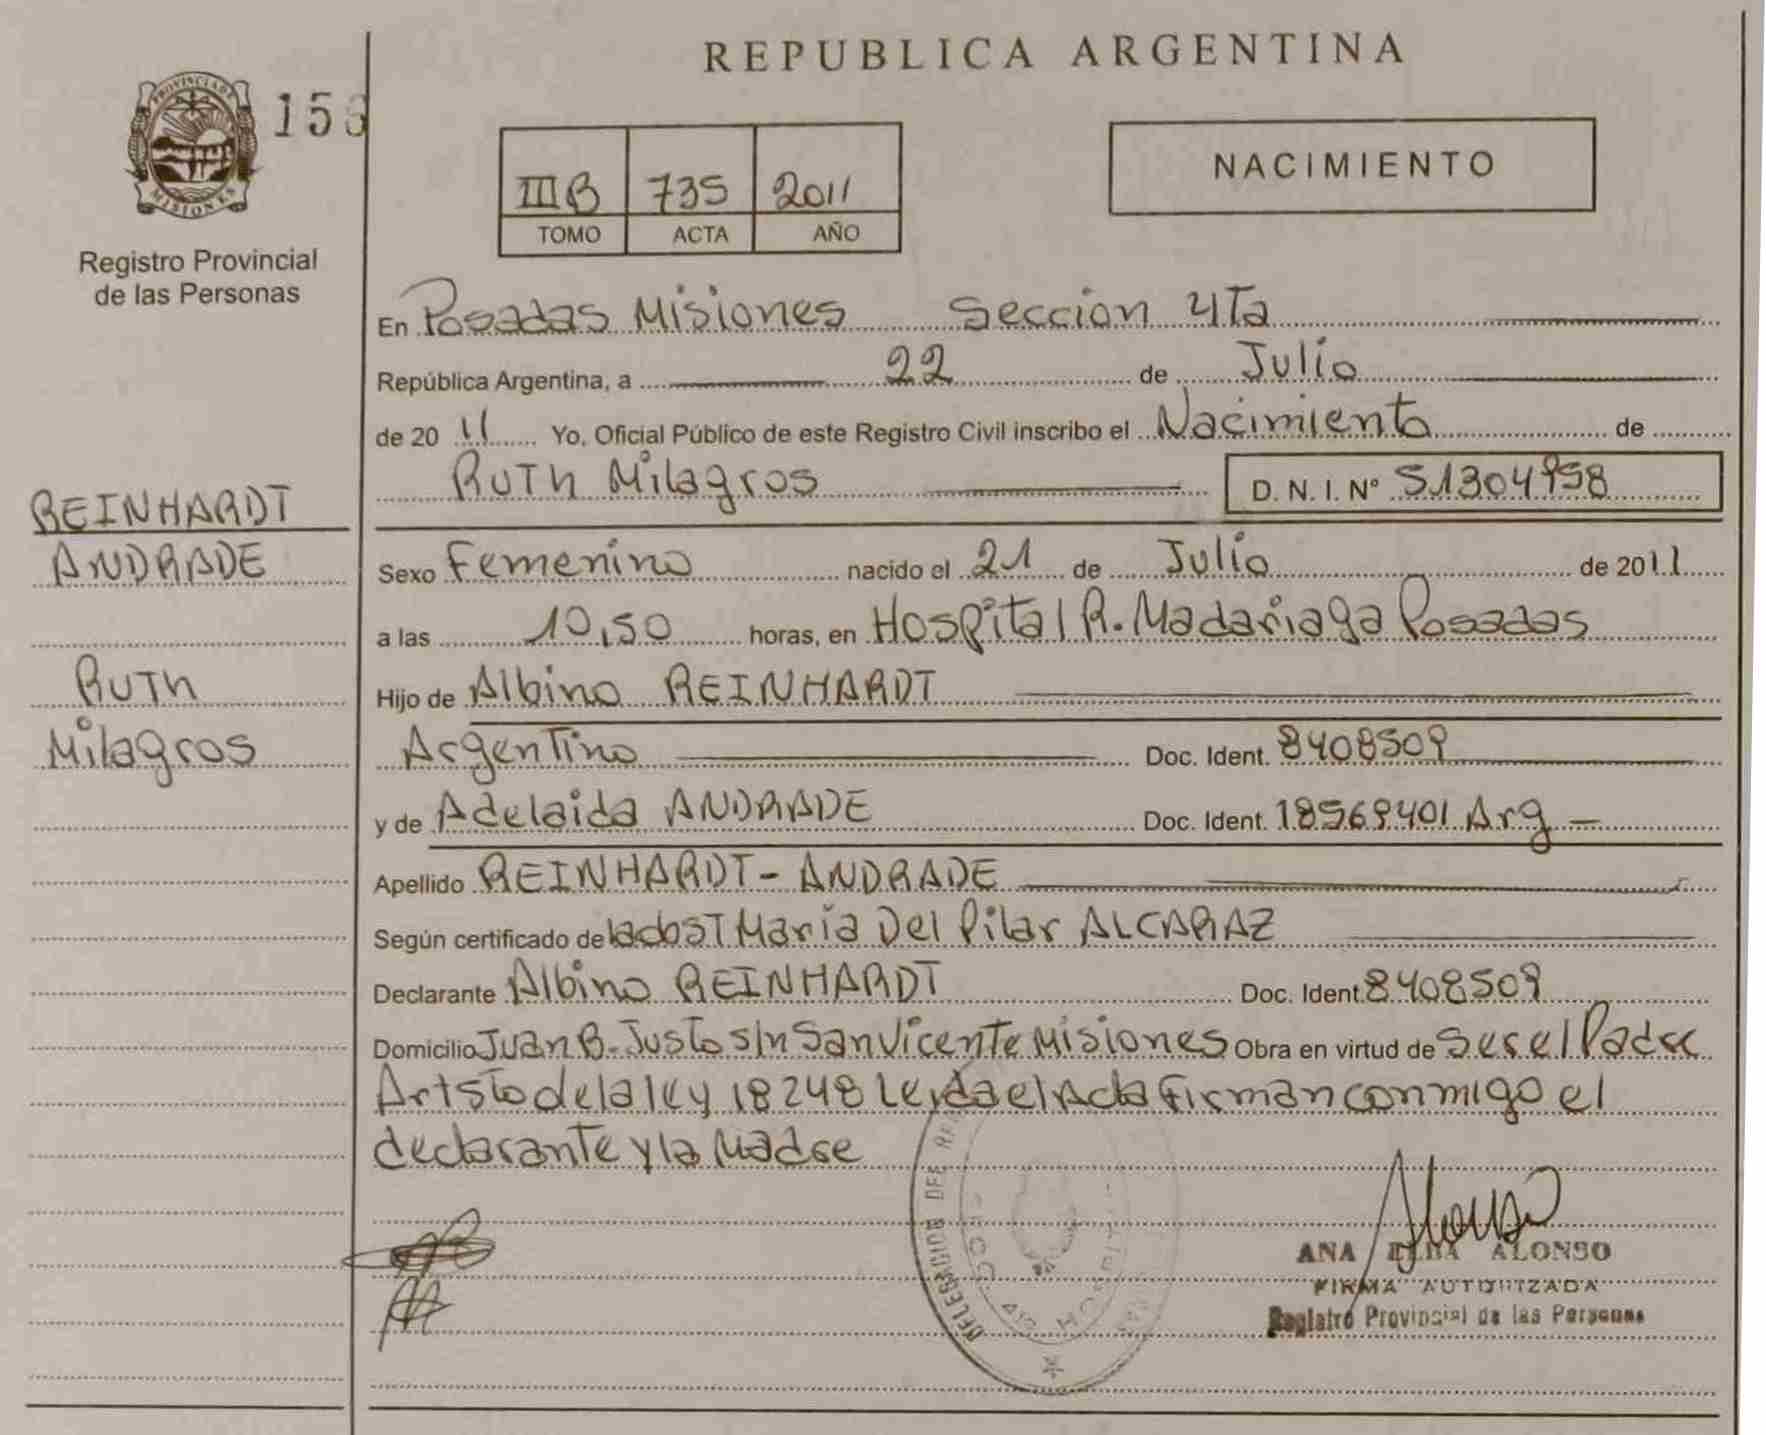 REPUBLICA ARGENTINA
PROVINCIA DE
MISIONES
Registro Provincial
de las Personas
III B 735 2011
TOMO ACTA AÑO
NACIMIENTO
En Posadas Misiones Seccion 4Ta
República Argentina, a 22 de Julio
de 2011 Yo, Oficial Público de este Registro Civil inscribo el Nacimiento de
Ruth Milagros D. N. I. N° 51304958
REINHARDT
ANDRADE
Ruth
Milagros
Sexo Femenino nacido el 21 de Julio de 2011
a las 10,50 horas, en Hospital R. Madariaga Posadas
Hijo de Albino REINHARDT
Argentino Doc. Ident. 8408509
y de Adelaida ANDRADE Doc. Ident. 18569401 Arg
Apellido REINHARDT - ANDRADE
Según certificado de la obsT María Del Pilar ALCARAZ
Declarante Albino REINHARDT Doc. Ident. 8408509
Domicilio Juan B. Justo s/n San Vicente Misiones Obra en virtud de Ser el Padre
Art 5to de la ley 18248 Leida el Acta firman conmigo el
declarante y la Madre
ANA ELBA ALONSO
FIRMA AUTORIZADA
Registro Provincial de las Personas